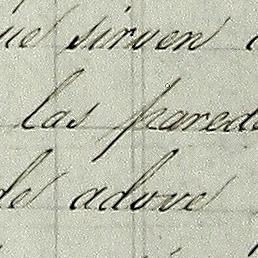 ue sirven
las pared
de adove